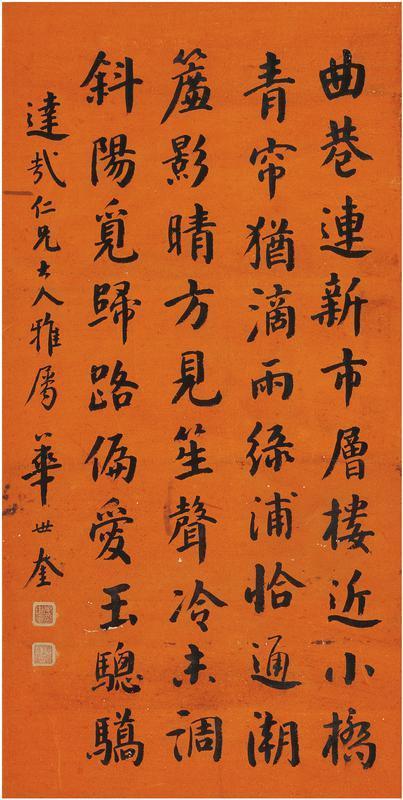 曲巷連新市層樓近小橋
青帘猶滴雨緑浦恰通潮
簾影晴方見笙聲冷未調
斜陽覓歸路偏愛玉驄驕
達哉仁兄大人雅屬 華世奎